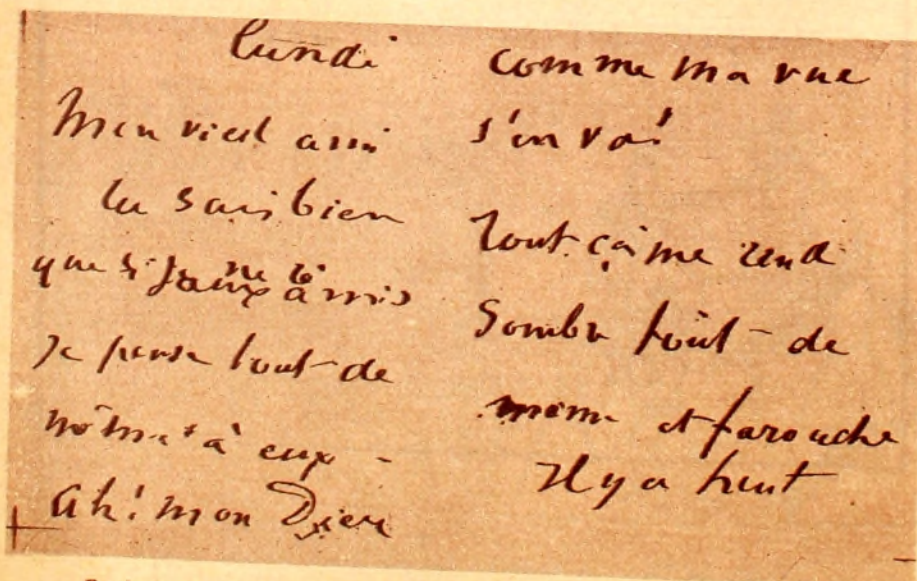 lundi
Mon vieil ami
tu sais bien
que si amis
je pense tout de
même à eux -
Ah! mon Dieu
comme ma vue
s'en va!
Tout ça me rend
sombre tout de
même et farouche
Il y a huit